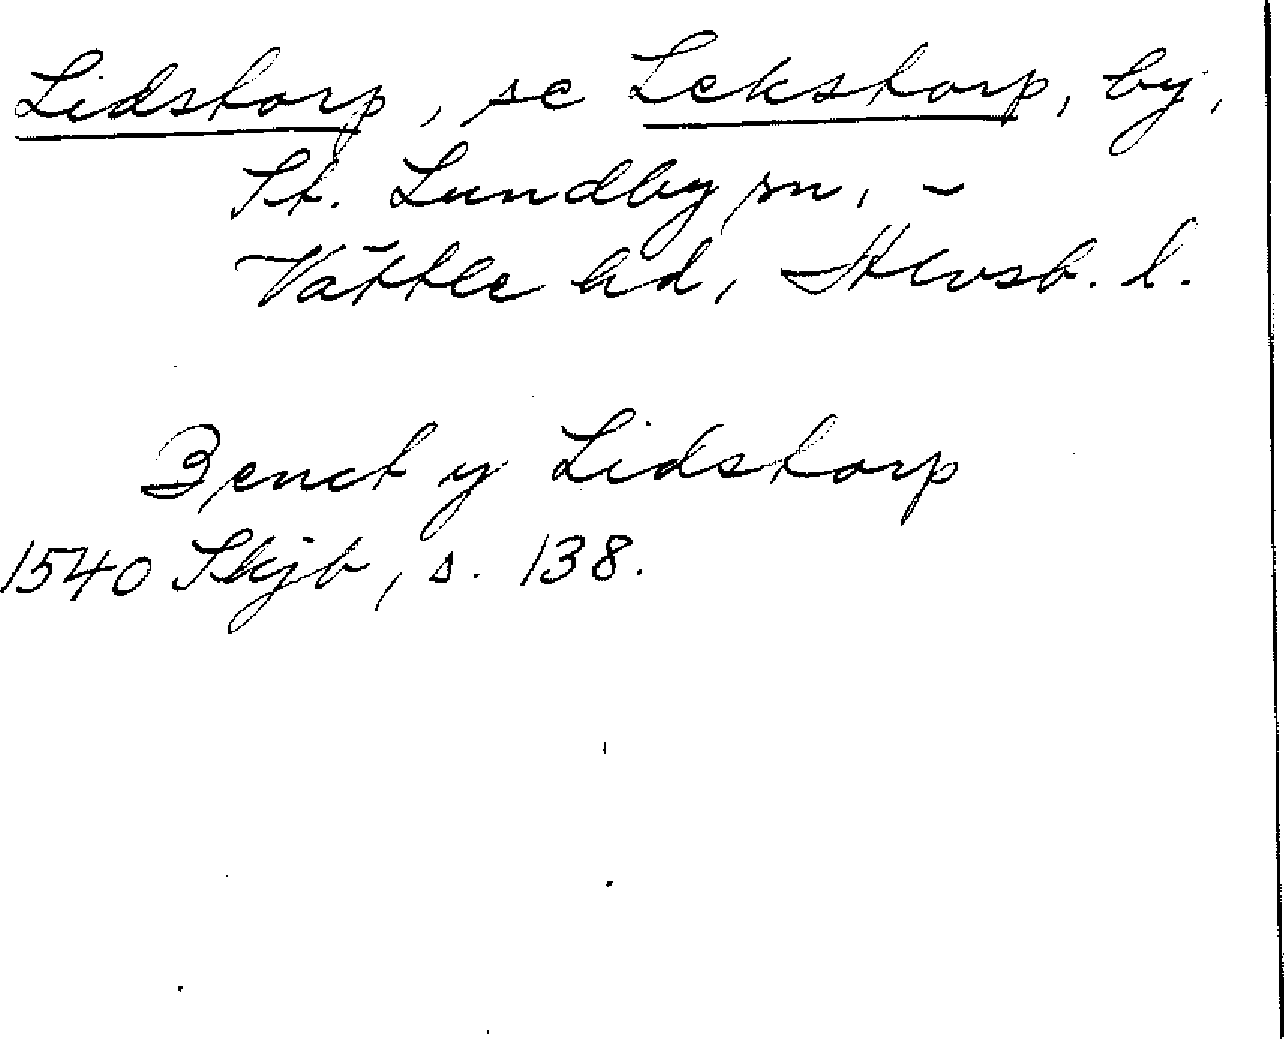 Lidstorp, se Lekstorp, by,
St. Lundby sn, -
Vättle hd, Älvsb. l.
Benct y Lidstorp
1540 Skjb, s. 138.